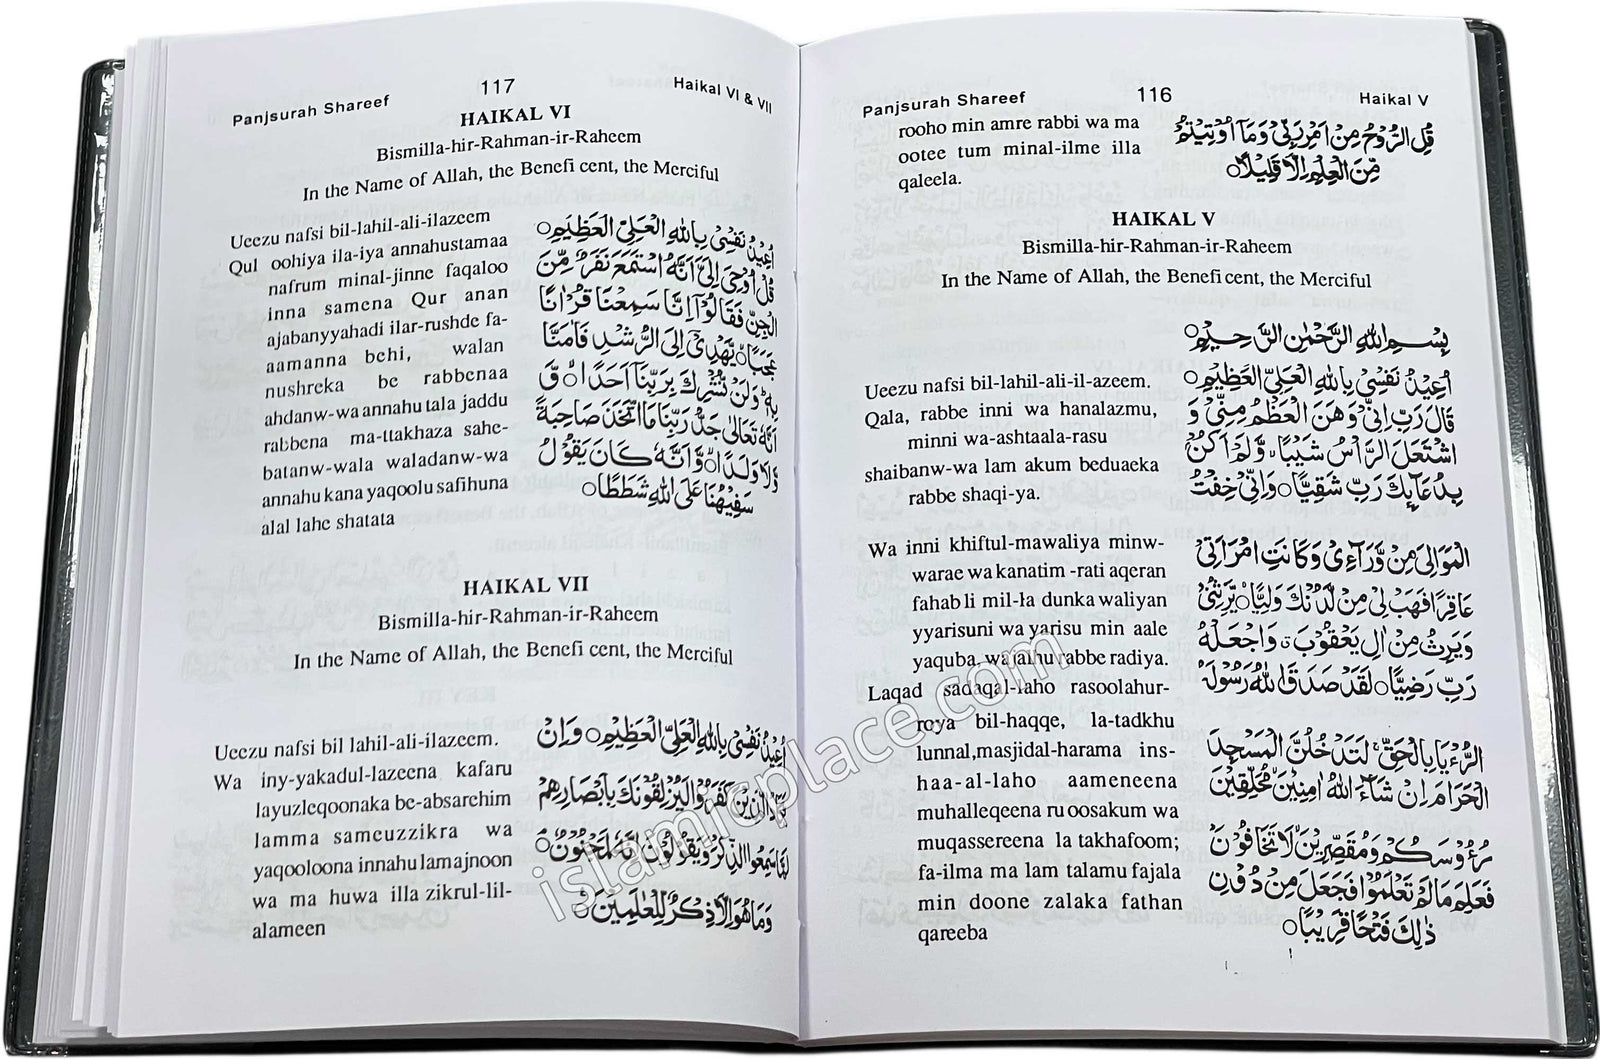 Panjsurah Shareef 116 Haikal V
rooho min amre rabbi wa ma
ootee tum minal-ilme illa
qaleela.
قُلِ الرُّوْحُ مِنْ اَمْرِ رَبِّیْ وَمَاۤ اُوْتِیْتُمْ
مِّنَ الْعِلْمِ اِلَّا قَلِیْلًا○
HAIKAL V
Bismilla-hir-Rahman-ir-Raheem
In the Name of Allah, the Beneficent, the Merciful
بِسْمِ اللّٰهِ الرَّحْمٰنِ الرَّحِیْمِ○
Ueezu nafsi bil-lahil-ali-il-azeem.
Qala, rabbe inni wa hanalazmu,
minni wa-ashtaala-rasu
shaibanw-wa lam akum beduaeka
rabbe shaqi-ya.
اُعِیْذُ نَفْسِیْ بِاللّٰهِ الْعَلِیِّ الْعَظِیْمِ○
قَالَ رَبِّ اِنِّیْ وَهَنَ الْعَظْمُ مِنِّیْ وَ
اشْتَعَلَ الرَّاْسُ شَیْبًا وَّلَمْ اَكُنْ
بِدُعَآىِٕكَ رَبِّ شَقِیًّا○ وَاِنِّیْ خِفْتُ
Wa inni khiftul-mawaliya minw-
warae wa kanatim -rati aqeran
fahab li mil-ła dunka waliyan
yyarisuni wa yarisu min aale
yaquba, wajalhu rabbe radiya.
Laqad sadaqal-laho rasoolahur-
roya bil-haqqe, la-tadkhu
lunnal,masjidal-harama ins-
haa-al-laho aameneena
muhalleqeena ru oosakum wa
muqassereena la takhafoom;
fa-ilma ma lam talamu fajala
min doone zalaka fathan
qareeba
الْمَوَالِیَ مِنْ وَّرَآءِیْ وَكَانَتِ امْرَاَتِیْ
عَاقِرًا فَهَبْ لِیْ مِنْ لَّدُنْكَ وَلِیًّا○ یَّرِثُنِیْ
وَیَرِثُ مِنْ اٰلِ یَعْقُوْبَ وَاجْعَلْهُ
رَبِّ رَضِیًّا○ لَقَدْ صَدَقَ اللّٰهُ رَسُوْلَهُ
الرُّءْیَا بِالْحَقِّ لَتَدْخُلُنَّ الْمَسْجِدَ
الْحَرَامَ اِنْ شَآءَ اللّٰهُ اٰمِنِیْنَ مُحَلِّقِیْنَ
رُءُوْسَكُمْ وَمُقَصِّرِیْنَ لَا تَخَافُوْنَ
فَعَلِمَ مَا لَمْ تَعْلَمُوْا فَجَعَلَ مِنْ دُوْنِ
ذٰلِكَ فَتْحًا قَرِیْبًا○
Panjsurah Shareef 117 Haikal VI & VII
HAIKAL VI
Bismilla-hir-Rahman-ir-Raheem
In the Name of Allah, the Benefi cent, the Merciful
Ueezu nafsi bil-lahil-ali-ilazeem
Qul oohiya ila-iya annahustamaa
nafrum minal-jinne faqaloo
inna samena Qur anan
ajabanyyahadi ilar-rushde fa-
aamanna behi, walan
nushreka be rabbenaa
ahdanw-wa annahu tala jaddu
rabbena ma-ttakhaza sahe-
batanw-wala waladanw-wa
annahu kana yaqoolu safihuna
alal lahe shatata
اُعِیْذُ نَفْسِیْ بِاللّٰهِ الْعَلِیِّ الْعَظِیْمِ○
قُلْ اُوْحِیَ اِلَیَّ اَنَّهُ اسْتَمَعَ نَفَرٌ مِّنَ
الْجِنِّ فَقَالُوْۤا اِنَّا سَمِعْنَا قُرْاٰنًا
عَجَبًا○ یَّهْدِیْۤ اِلَی الرُّشْدِ فَاٰمَنَّا
بِهٖ وَلَنْ نُّشْرِكَ بِرَبِّنَاۤ اَحَدًا○ وَّ
اَنَّهٗ تَعٰالٰی جَدُّ رَبِّنَا مَا اتَّخَذَ صَاحِبَةً
وَّلَا وَلَدًا○ وَّاَنَّهٗ كَانَ یَقُوْلُ
سَفِیْهُنَا عَلَی اللّٰهِ شَطَطًا○
HAIKAL VII
Bismilla-hir-Rahman-ir-Raheem
In the Name of Allah, the Benefi cent, the Merciful
Ueezu nafsi bil lahil-ali-ilazeem.
Wa iny-yakadul-lazeena kafaru
layuzleqoonaka be-absarehim
lamma sameuzzikra wa
yaqooloona innahu lamajnoon
wa ma huwa illa zikrul-lil-
alameen
اُعِیْذُ نَفْسِیْ بِاللّٰهِ الْعَلِیِّ الْعَظِیْمِ○ وَاِنْ
یَّكَادُ الَّذِیْنَ كَفَرُوْا لَیُزْلِقُوْنَكَ بِاَبْصَارِهِمْ
لَمَّا سَمِعُوا الذِّكْرَ وَیَقُوْلُوْنَ اِنَّهٗ لَمَجْنُوْنٌ○
وَمَا هُوَ اِلَّا ذِكْرٌ لِّلْعٰلَمِیْنَ○
islamicplace.com